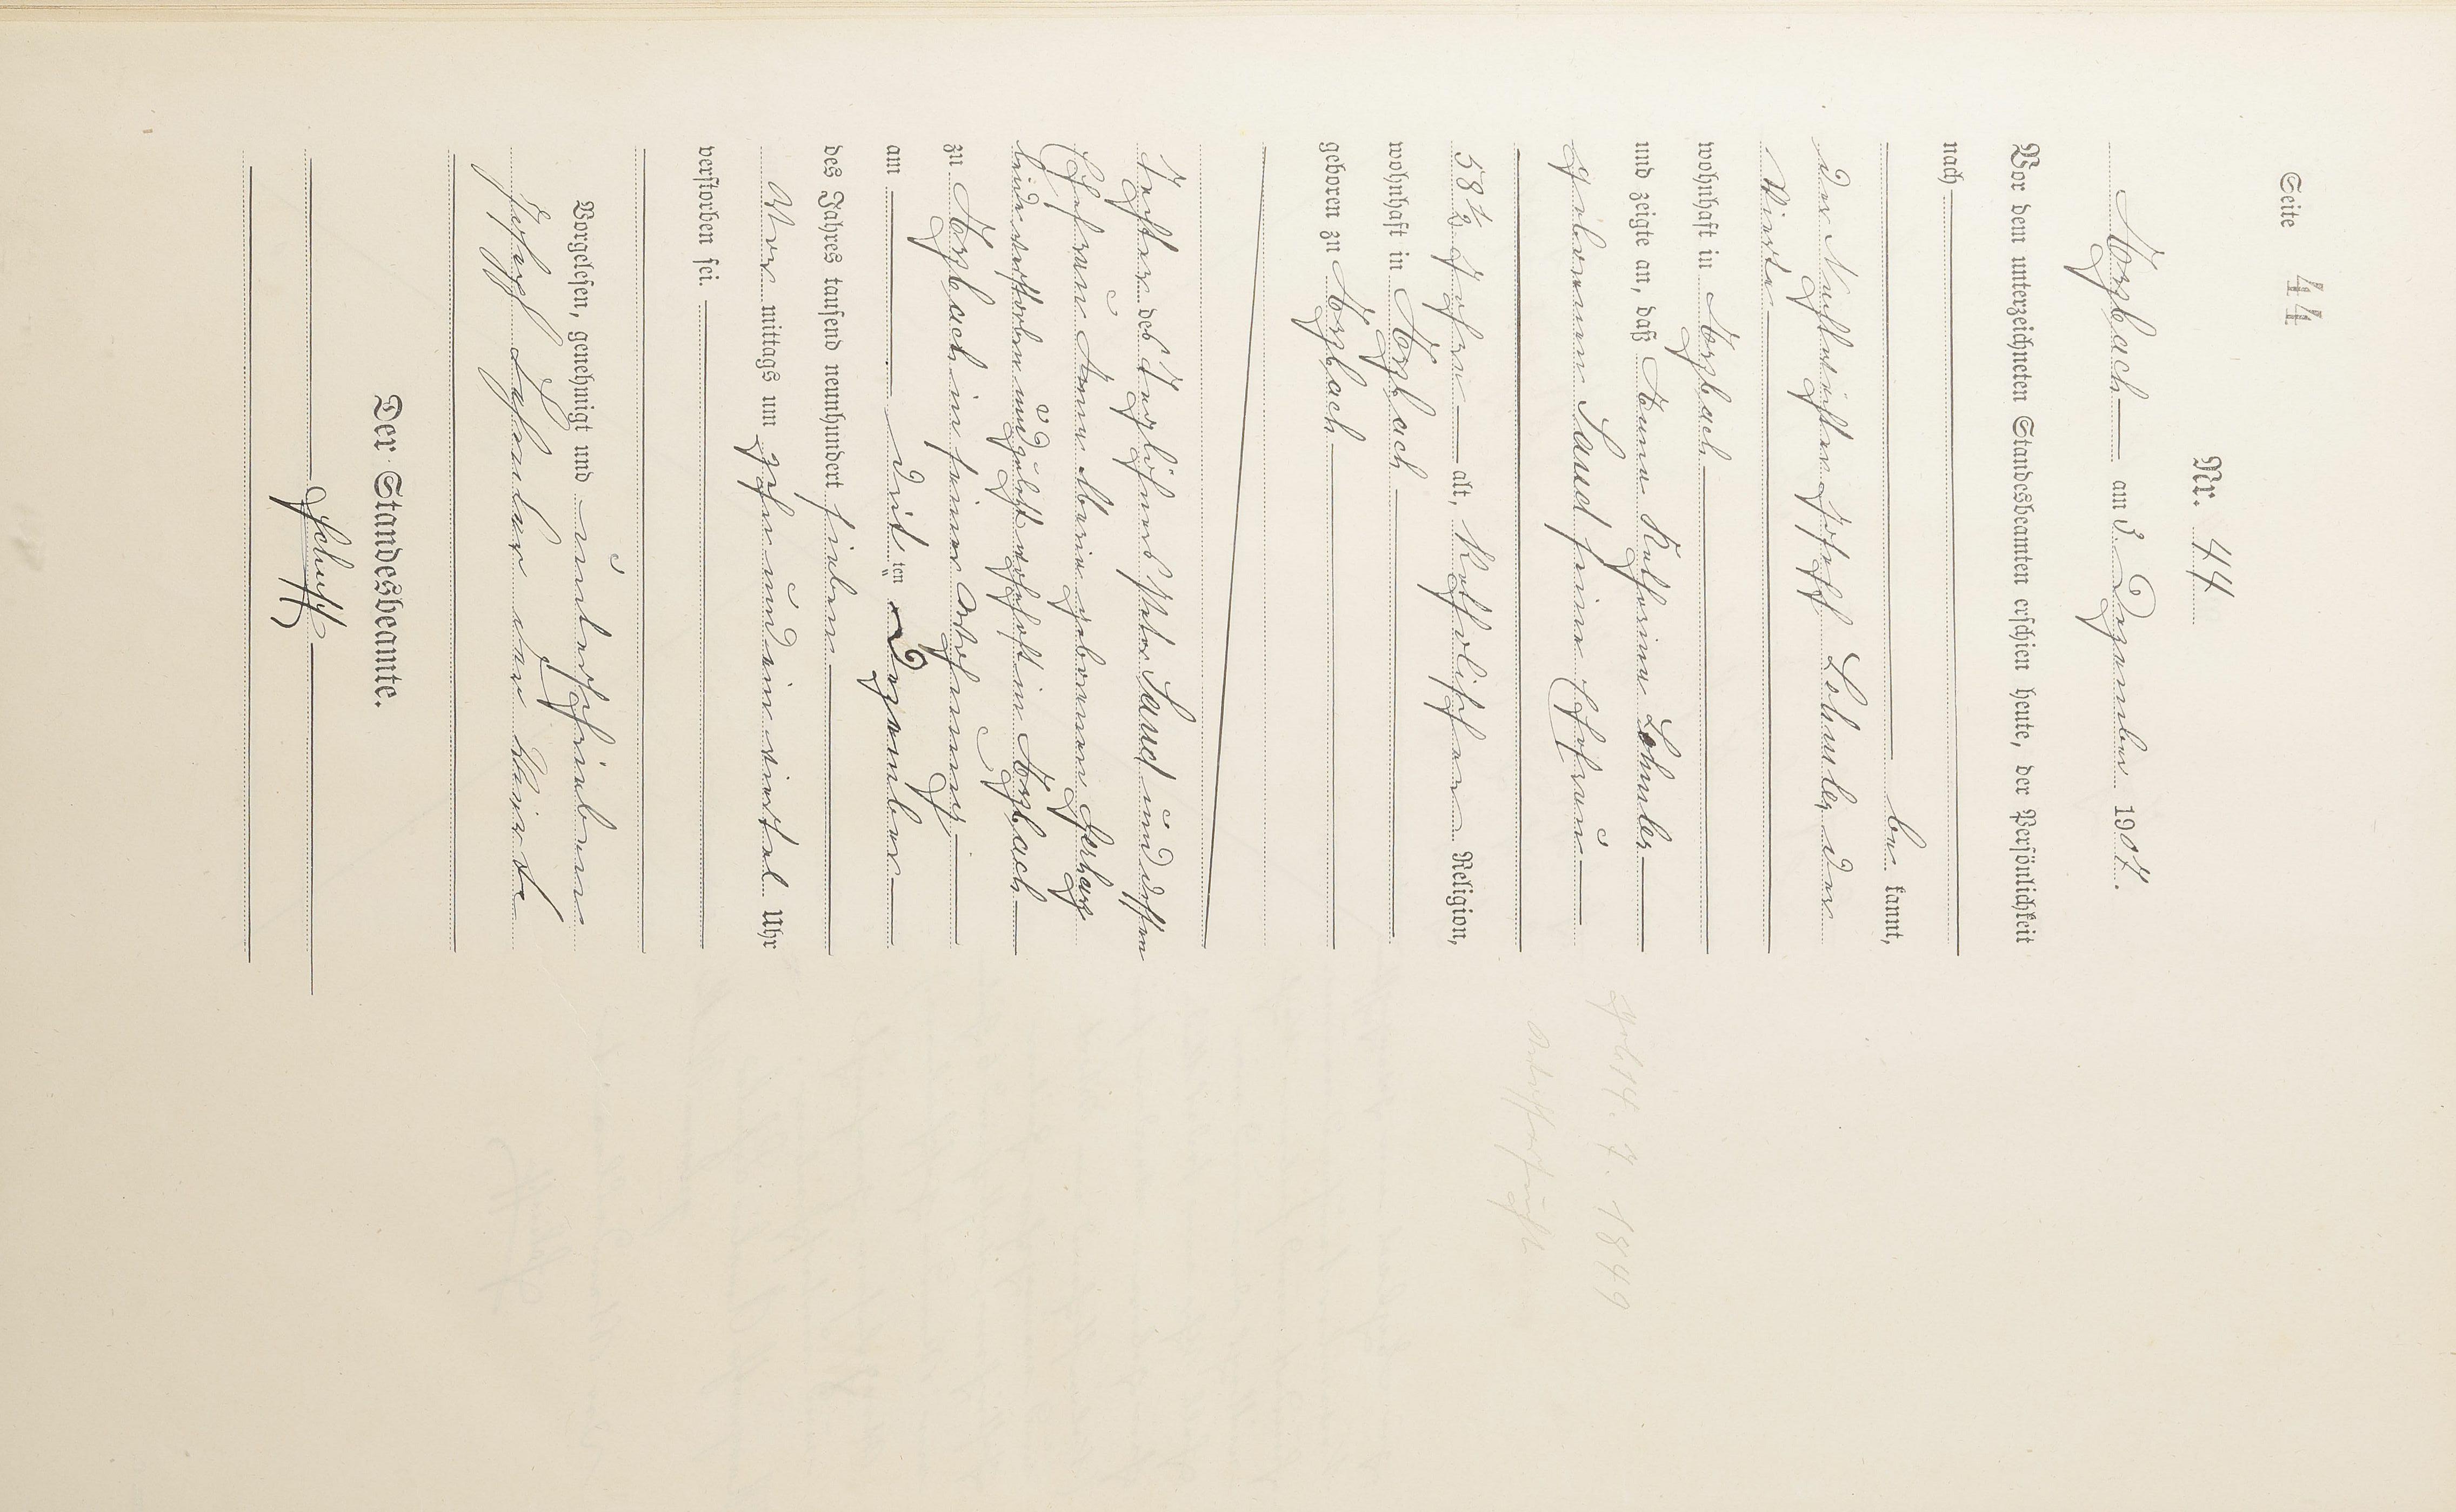 Seite 44
Nr. 44
Asbach am 3. Dezember 1907.
Vor dem unterzeichneten Standesbeamten erschien heute, der Persönlichkeit
nach
be kannt,
der Nachtwächter Joseph Lehnler der
Vierte
wohnhaft in Asbach
und zeigte an, daß Anna Katharina
geborenen Sand seine Ehefrau
58 1/2 Jahre alt, Katholischer Religion,
wohnhaft in Asbach
geboren zu Asbach
Tochter des Tagelöhners Peter Sand und dessen
Ehefrau Anna Maria geborenen
beide verstorben und zuletzt wohnhaft in Asbach
zu Asbach in seiner Wohnung
am drit ten Dezember
des Jahres tausend neunhundert sieben
Vor mittags um zehn und ein viertel Uhr
verstorben sei.
Vorgelesen, genehmigt und unterschrieben
Joseph der Vierte
Der Standesbeamte.
geb 14. 7. 1849